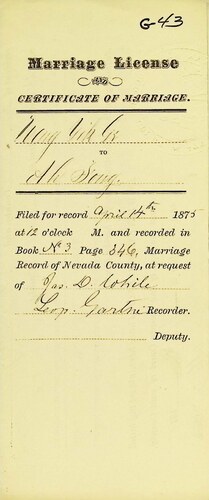 G-43
Marriage License
CERTIFICATE OF MARRIAGE.
TO
Filed for record April 14th 1875
at 12 o'clock M. and recorded in
Book No 3 Page 346, Marriage
Record of Nevada County, at request
of Jas. D. White
Leop. Garthe Recorder.
Deputy.